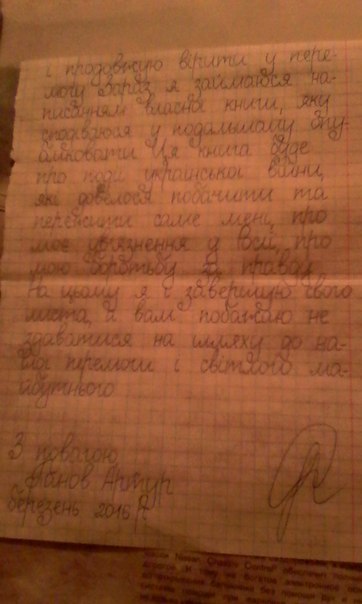 і продовжую вірити у пере-
могу Зараз я займаюся на-
писанням власної книги, яку
сподіваюся у подальшому опу-
блікувати Ця книга буде
про події української війни,
які довелося побачити та
пережити саме мені, про
моє ув'язнення у Росії, про
мою боротьбу за правду
На цьому я і завершую свого
листа, а вам побажаю не
здаватися на шляху до на-
шої перемоги і світлого ма-
йбутнього
З повагою
Панов Артур
березень 2016 р.